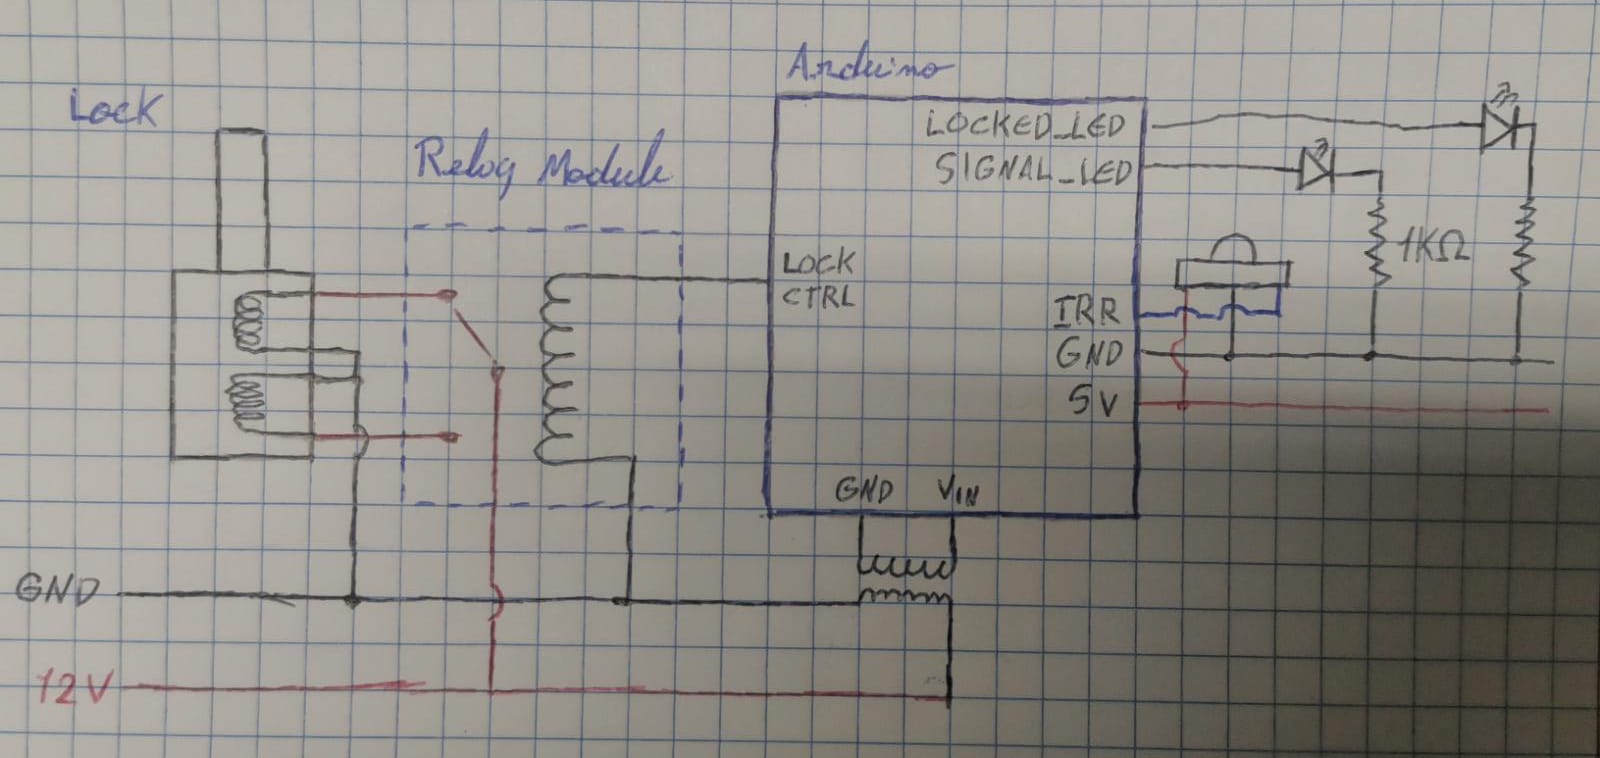 Arduino
Lock
Relay Module
LOCKED_LED
SIGNAL_LED
1KΩ
LOCK
CTRL
IRR
GND
5V
GND
VIN
GND
12V